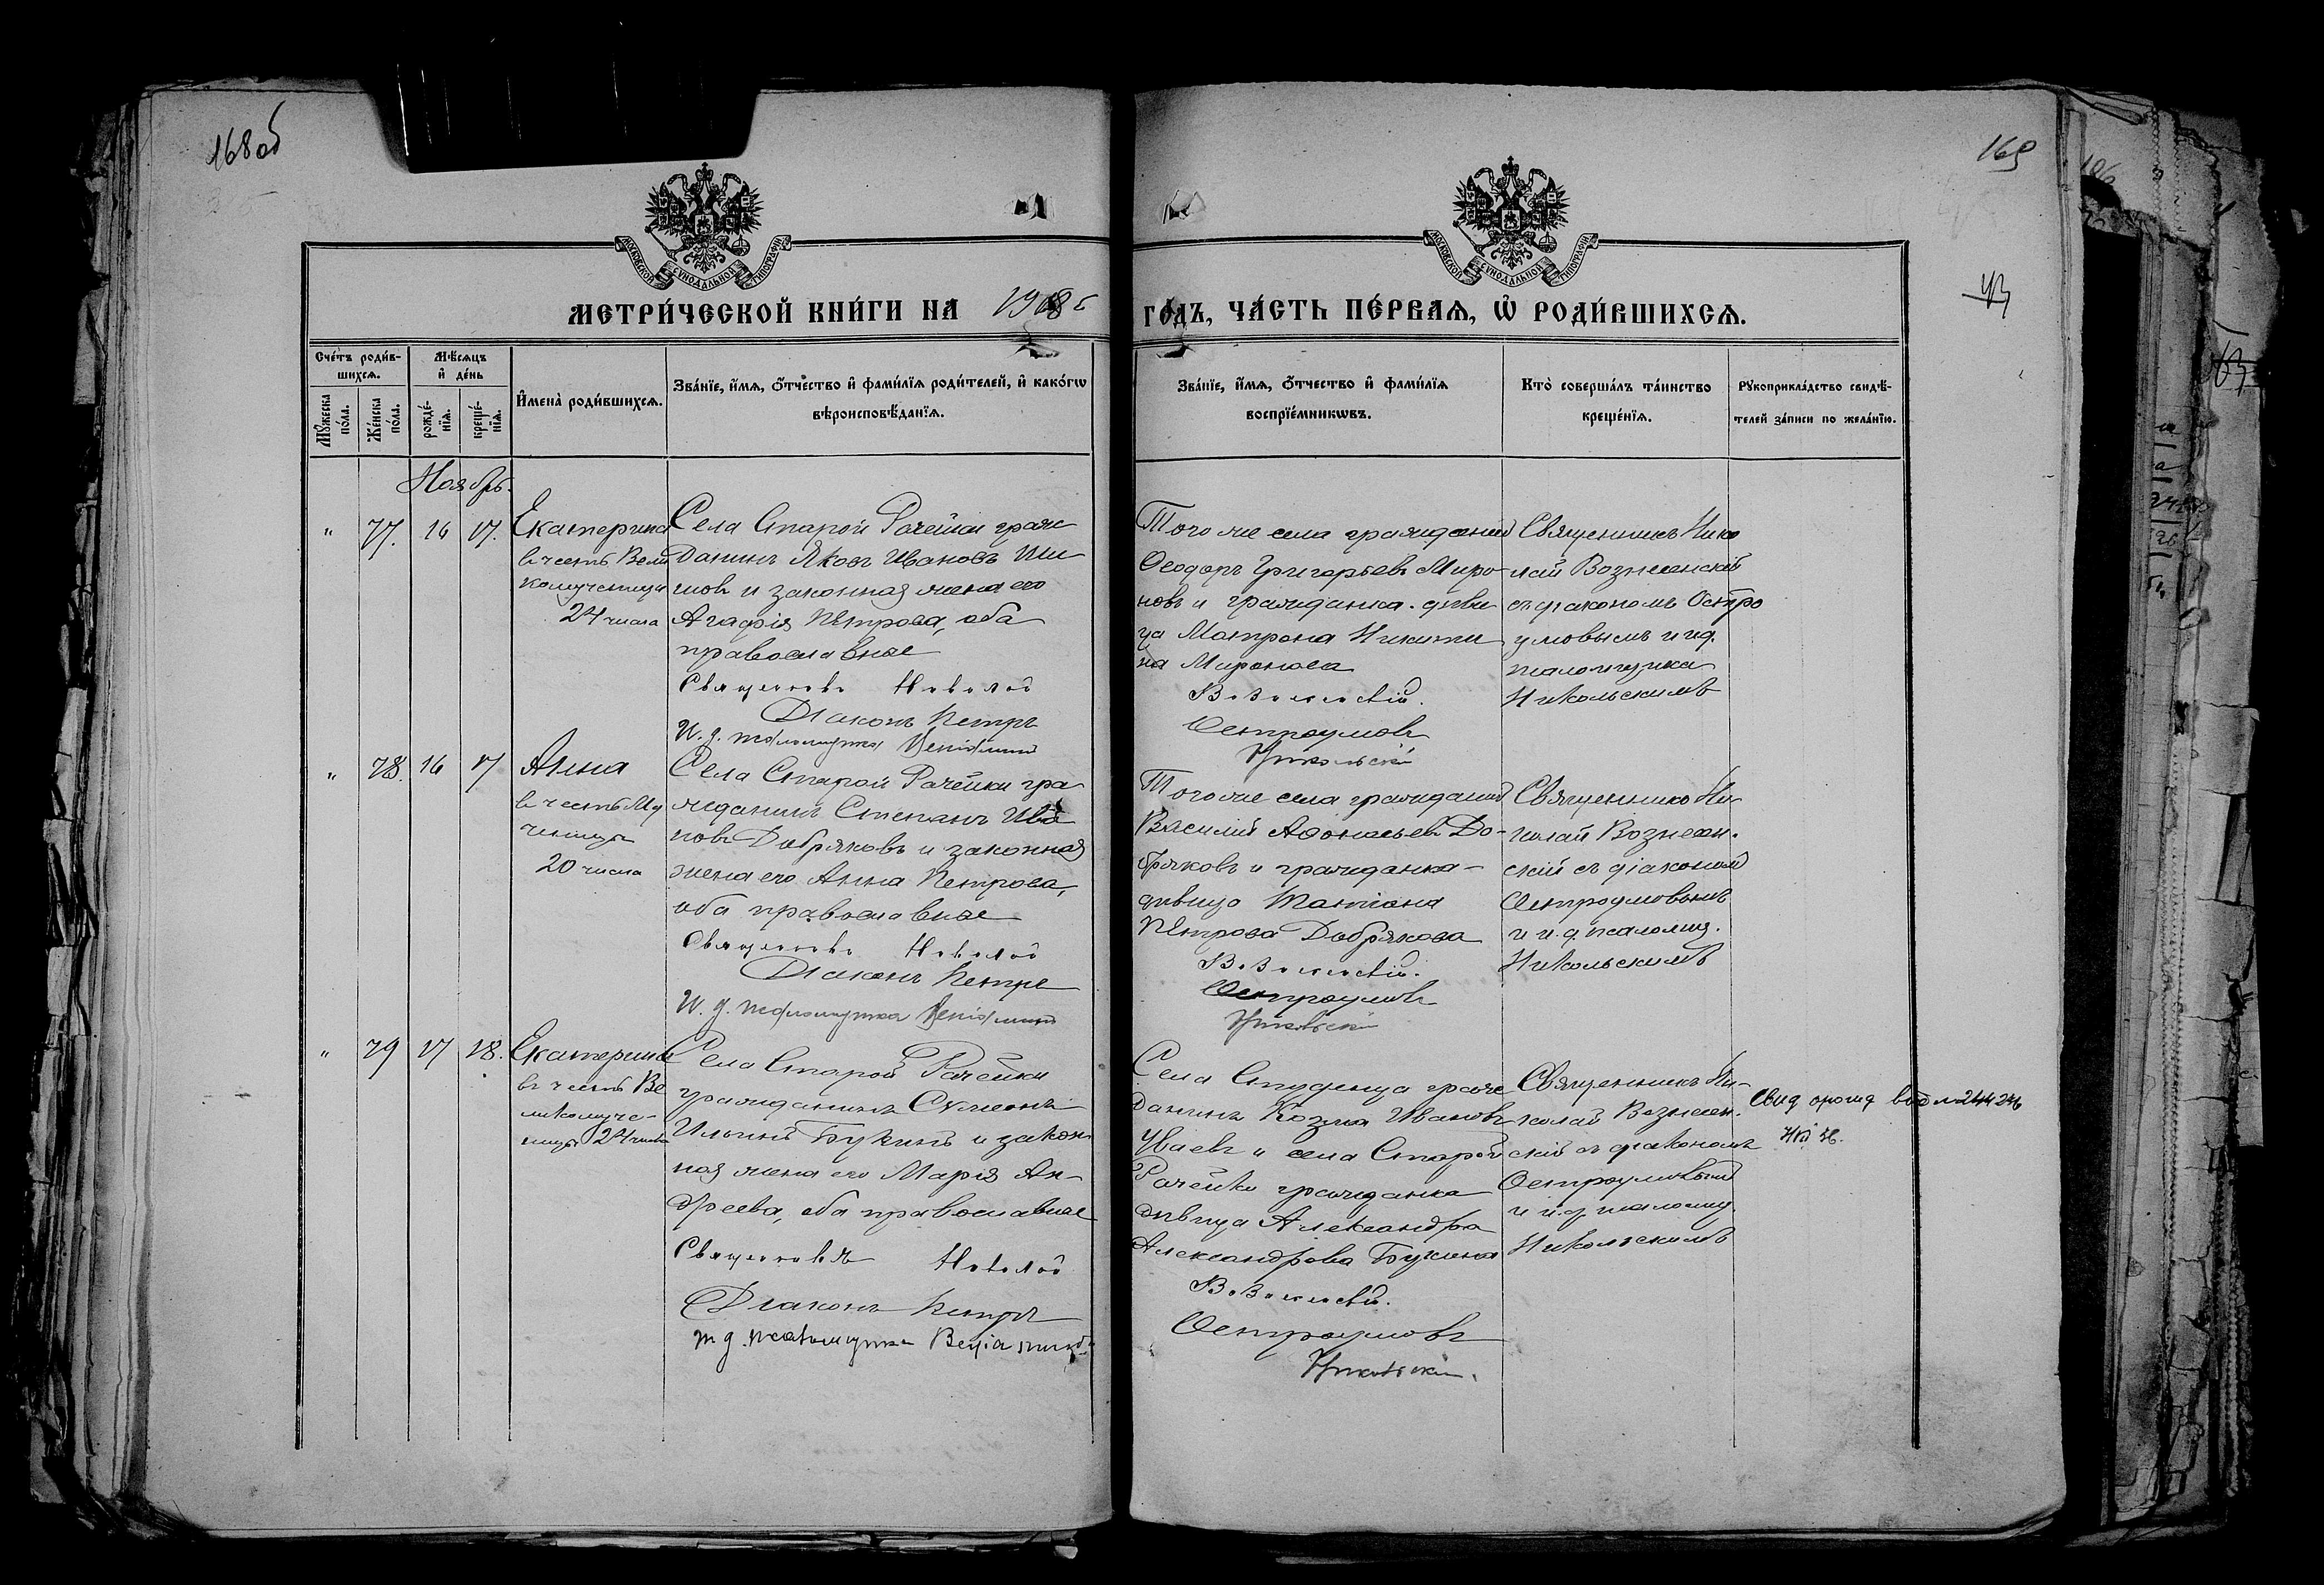 168об
169
43
МОСКОВСКОЙ СѴНОДАЛЬНОЙ ТИПОГРАФІИ
МОСКОВСКОЙ СѴНОДАЛЬНОЙ ТИПОГРАФІИ
МЕТРИ́ЧЕСКОЙ КНИ́ГИ НА 1918 г
ГО́ДЪ, ЧА́СТЬ ПЕ́РВАѦ, Ѡ҆ РОДИ́ВШИХСѦ.
Сче́тъ роди́в-
шихсѧ.
Мꙋ́жеска по́ла.
Же́нска по́ла.
Мѣ́сѧцъ
и҆ де́нь
рожде́-
нїѧ.
креще́-
нїѧ.
И҆мена̀ роди́вшихсѧ.
Зва́нїе, и҆́мѧ, ѻ҆́тчество и҆ фами́лїѧ роди́телей, и҆ како́гѡ
вѣроисповѣ́данїѧ.
Зва́нїе, и҆́мѧ, ѻ҆́тчество и҆ фами́лїѧ
воспрїе́мникѡвъ.
Кто̀ соверша́лъ та́инство
креще́нїѧ.
Рꙋкоприкла́дство свидѣ́-
телей за́писи по жела́нїю.
Ноябрь.
" 77. 16 17.
Екатерина
в честь Вели
комученицы
24 числа
Села Старой Рачейки граж
данинъ Яковъ Ивановъ Ши
шовъ и законная жена его
Агафія Петрова, оба
православные
Священникъ Николай
Діаконъ Петръ
И. д. псаломщика Веніаминъ
Того же села гражданинъ
Ѳеодоръ Григорьевъ Миро-
новъ и гражданка - дѣви
ца Матрона Никити
на Миронова
Вознесенскій.
Остроумовъ
Никольскій
Священникъ Нико
лай Вознесенскій
съ діакономъ Остро
умовымъ и и.д.
псаломщика
Никольскимъ
" 78. 16 17
Анна
в честь Му
ченицы
20 числа
Села Старой Рачейки гра-
жданинъ Степанъ Ива
новъ Добряковъ и законная
жена его Анна Петрова,
оба православные
Священникъ Николай
Діаконъ Петръ
И. д. псаломщика Веніаминъ
Того же села гражданинъ
Василій Аѳонасьевъ До-
бряковъ и гражданка -
дѣвица Татіана
Петрова Добрякова
Вознесенскій.
Остроумовъ
Никольскій
Священникъ Ни-
колай Вознесен-
скій съ діакономъ
Остроумовымъ
и и. д. псаломщ.
Никольскимъ
" 79 17 18.
Екатерина
въ честь Ве
ликомуче-
ницы 24 числа
Села Старой Рачейки
гражданинъ Сѵмеонъ
Ильинъ Букинъ и закон
ная жена его Марія Ан-
дреева, оба православные
Священникъ Николай
Діаконъ Петръ
И д. псаломщика Веніаминъ
Села Студенца граж
данинъ Козма Ивановъ
Уваевъ и села Старой
Рачейки гражданка
дѣвица Александра
Александрова Букина
Вознесенскій.
Остроумовъ
Никольскій.
Священникъ Ни-
колай Вознесен-
скій съ діакономъ
Остроумовымъ
и и. д. псаломщ.
Никольскимъ
Свид о рожд